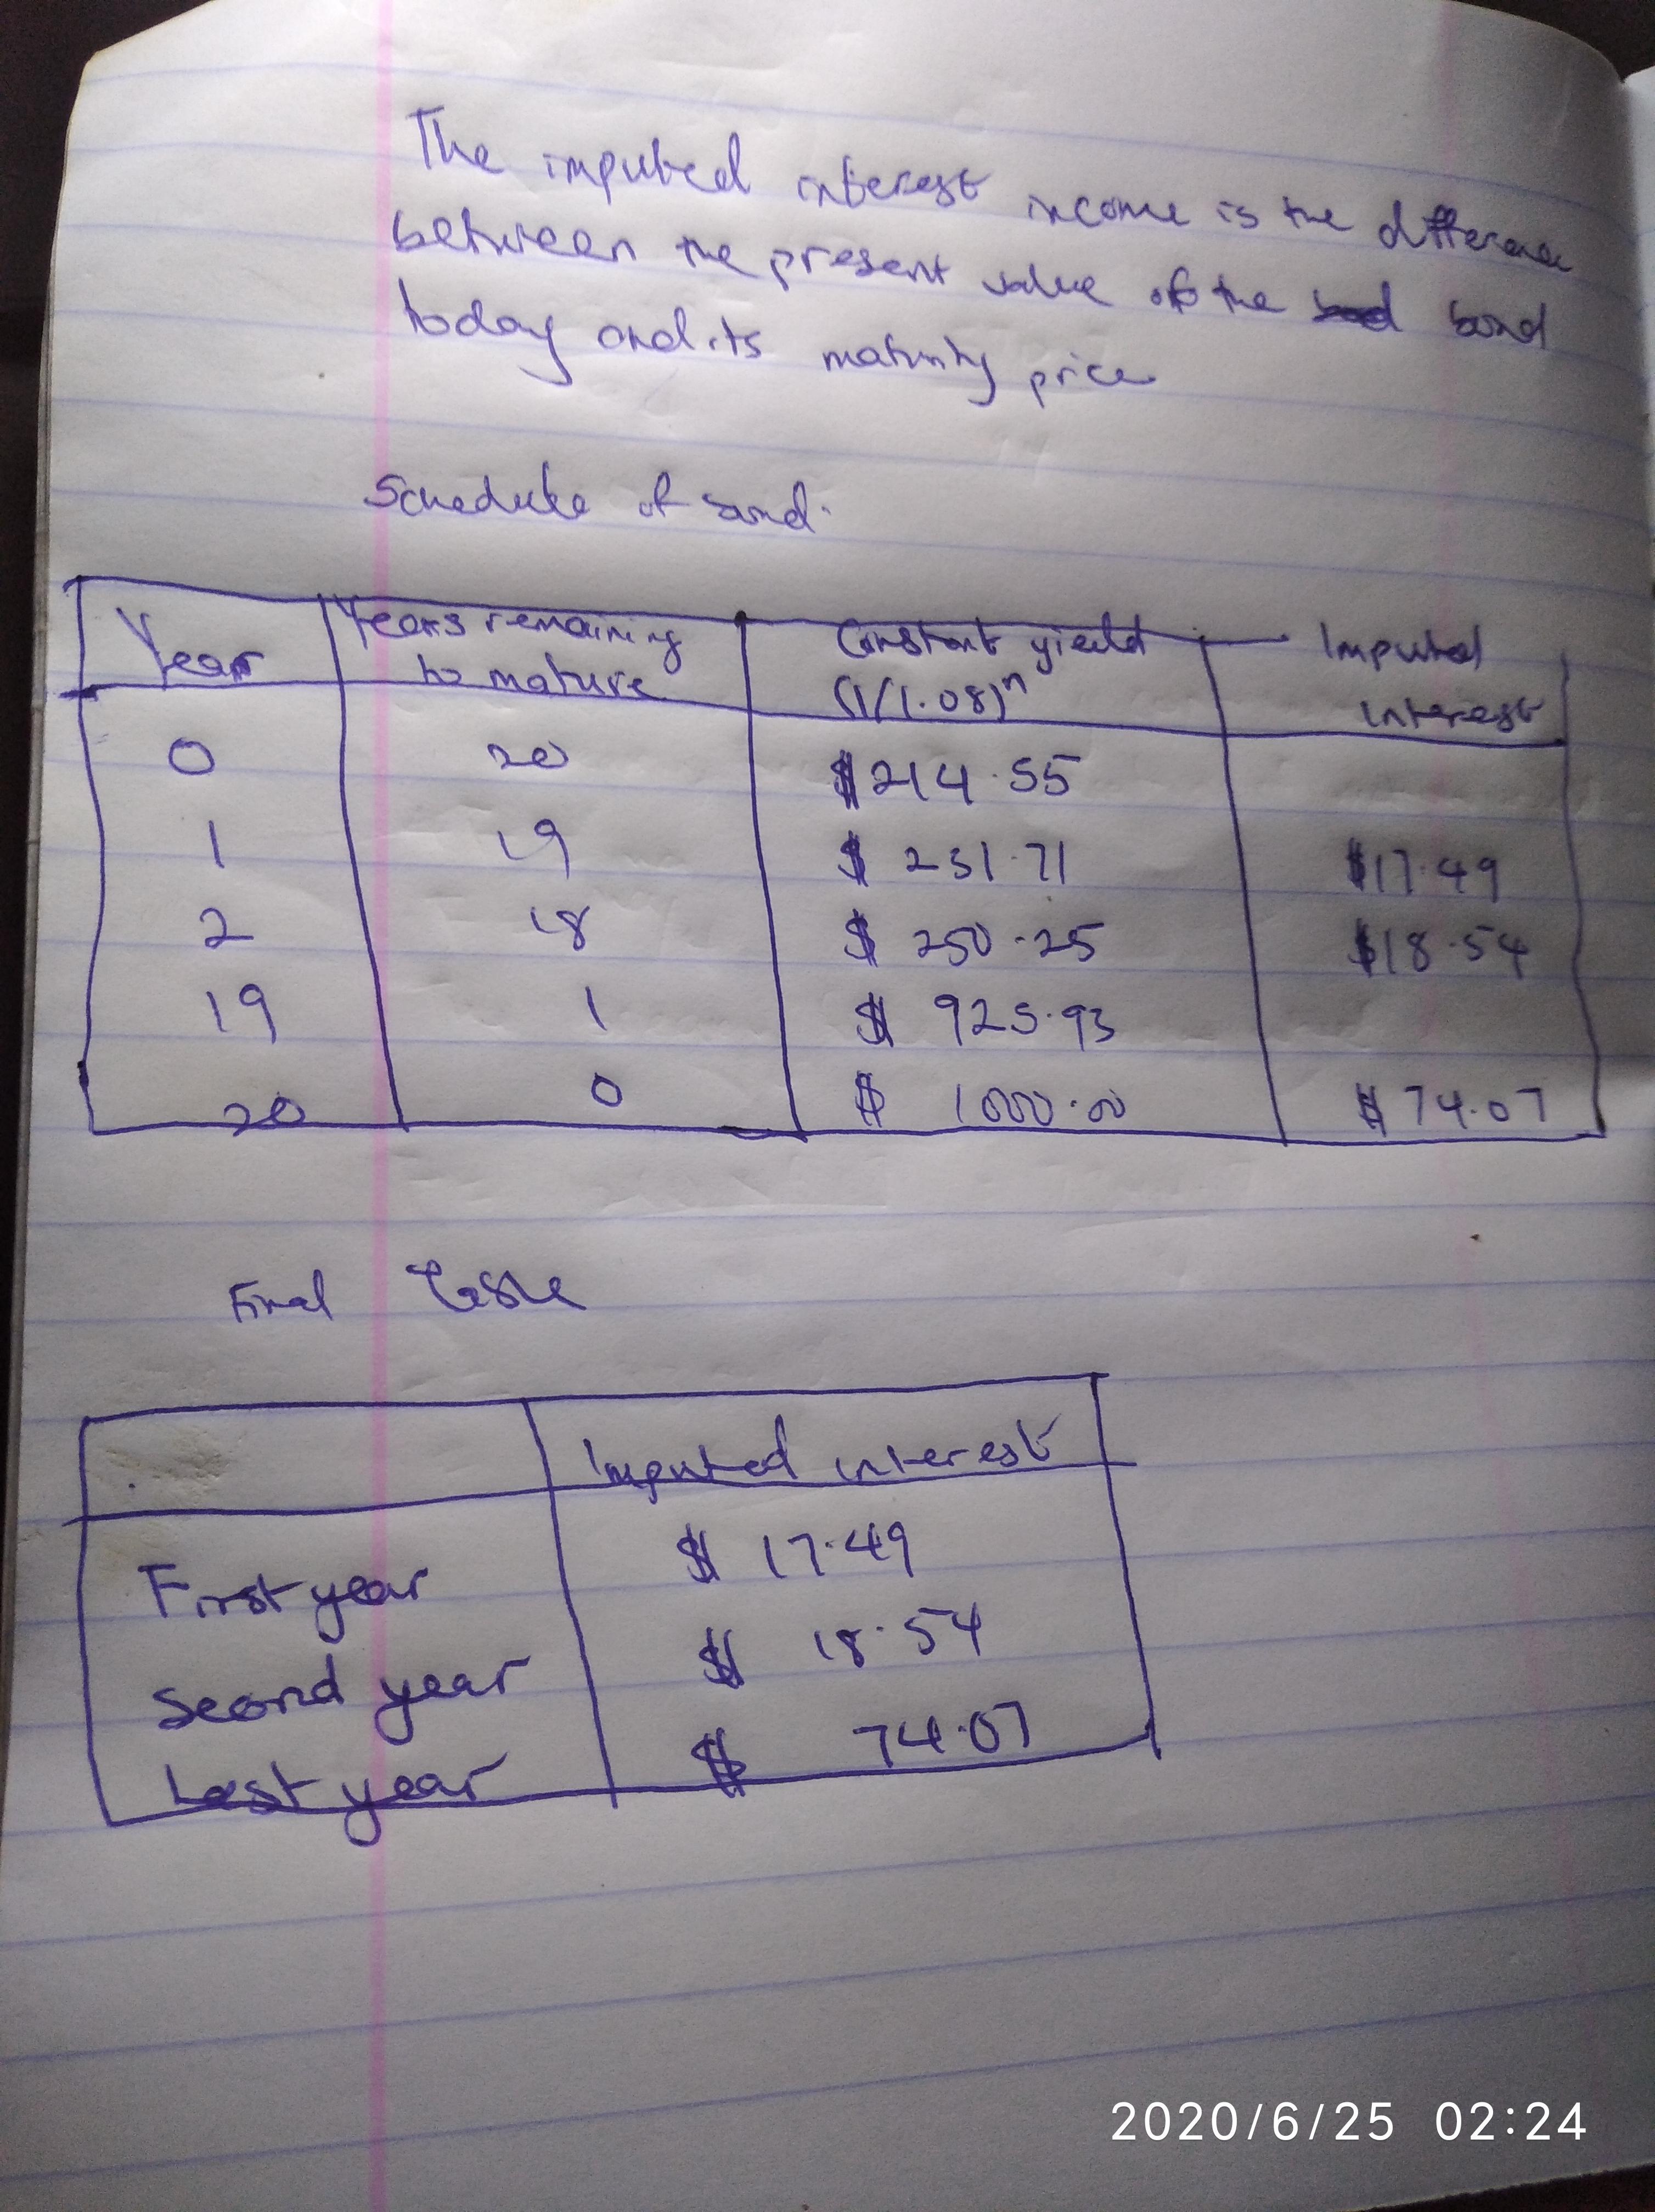 The imputed interest income is the difference
between the present value of the bond
today and its maturity price
Schedule of bond.
Year Years remaining to mature Constant yield (1/1.08)^n Imputed interest
0 20 $214.55
1 19 $231.71 $17.49
2 18 $250.25 $18.54
19 1 $925.93
20 0 $1000.00 $74.07
Final Table
Imputed interest
First year $17.49
Second year $18.54
Last year $74.07
2020/6/25 02:24